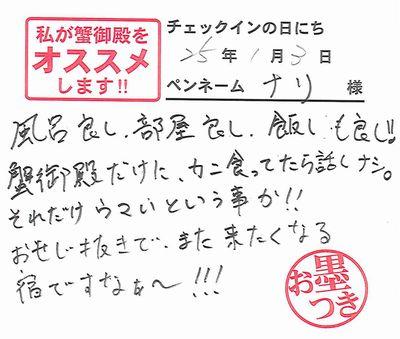 私が蟹御殿を
オススメ
します!!
チェックインの日にち
25年1月3日
ペンネーム ナリ 様
風呂良し、部屋良し、飯しも良し!!
蟹御殿だけに、カニ食ってたら話しナシ。
それだけウマいという事か!!
おせじ抜きで、また来たくなる
宿ですなぁ〜!!!
お墨つき